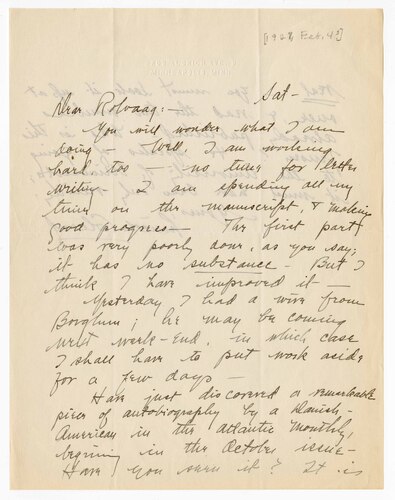 [1928, Feb. 4?]
Sat—
Dear Rolvaag:—
You will wonder what I am
doing — Well, I am working
hard too — no time for letter
writing — I am spending all my
time on the manuscript, & making
good progress — The first part
was very poorly done, as you say;
it has no substance — But I
think I have improved it —
Yesterday I had a wire from
Borglum; he may be coming
next week-end, in which case
I shall have to put work aside
for a few days —
Have just discovered a remarkable
piece of autobiography by a Danish-
American in the Atlantic Monthly,
beginning in the October issue—
Have you seen it? It is